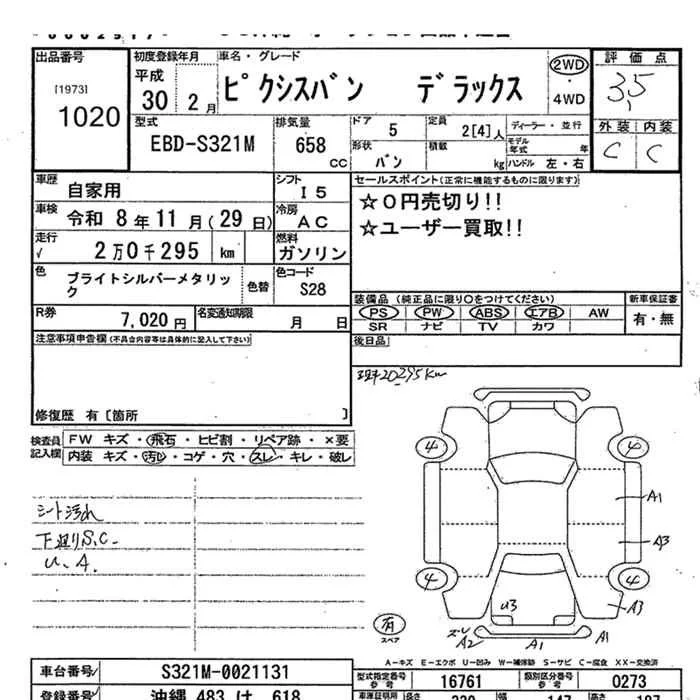 出品番号
[1973]
1020
初度登録年月
平成
30年 2月
車名・グレード
ピクシスバン デラックス
2WD
・
4WD
評価点
3.5
外装 内装
C C
型式
EBD-S321M
排気量
658 cc
ドア
5
定員
2[4]人
ディーラー・並行
形状
バン
積載
kg
モデル年式 年
ハンドル 左・右
車歴
自家用
シフト
I5
車検
令和 8年11月(29日)
冷房
AC
走行
√ 2万0千295 km
燃料
ガソリン
色
ブライトシルバーメタリック
色替
色コード
S28
R券
7,020円
名変通知期限
月 日
セールスポイント(正常に機能するものに限ります)
☆0円売切り!!
☆ユーザー買取!!
装備品 (純正品に限り○をつけてください)
PS PW ABS エアB AW
SR ナビ TV カワ
新車保証書
有・無
後日品
注意事項申告欄(不具合内容等は具体的に記入して下さい)
修復歴 有[箇所 ]
現+20295km
検査員
記入欄
FW キズ・飛石・ヒビ割・リペア跡・×要
内装 キズ・汚れ・コゲ・穴・スレ・キレ・破レ
シート汚れ
下廻りS.C-
U、A.
4 4
A1
A3
4 4
A3
U3
有
スペア
ズレ
A2 A1 A1
A-キズ E-エクボ U-凹み W-補修跡 S-サビ C-腐食 XX-交換済
車台番号
S321M-0021131
登録番号
沖縄 483 け 618
型式指定番号
16761
類別区分番号
0273